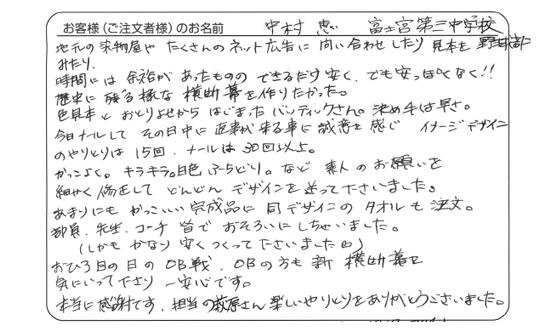 お客様(ご注文者様)のお名前 中村 恵 富士宮第三中学校
野球部
地元の染物屋や たくさんのネット広告に 問い合わせしたり 見本を
みたり.
時間には余裕が あったものの できるだけ安く、でも安っぽくなく!!
歴史に残る様な 横断幕を作りたかった。
色見本と おとりよせから はじまった バンティックさん。決め手は早さ。
今日メールして その日中に 返事が来る事に 誠意を感じ イメージデザイン
のやりとりは 15回、メールは 30回以上。
かっこよく。キラキラ。白色ふちどり。など 素人の お願いを
細かく 修正して どんどん デザインを送って下さいました。
あまりにも かっこいい 完成品に 同デザインの タオルも 注文。
部員、先生、コーチ 皆で おそろいに しちゃいました。
(しかも かなり 安く つくって下さいました)
おひろ目の日の OB戦、OBの方も 新 横断幕を
気にいって下さり 一安心です。
本当に感謝です。担当の萩原さん 楽しいやりとりを ありがとうございました。